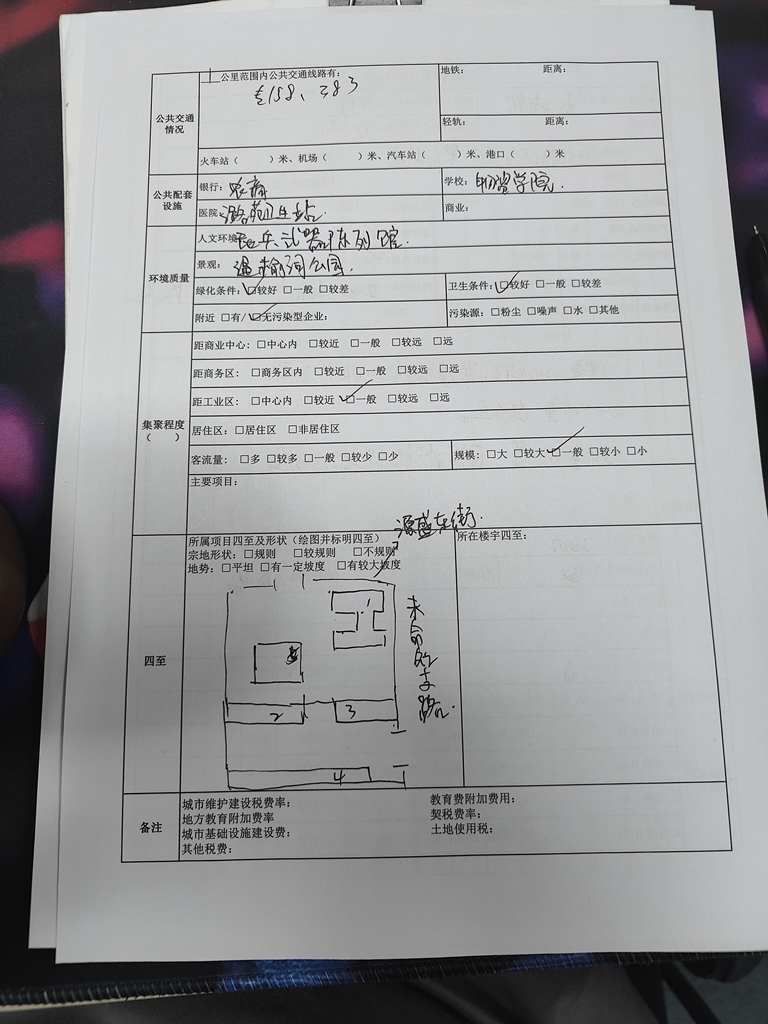 一公里范围内公共交通线路有：
专158、383
地铁： 距离：
公共交通情况
轻轨： 距离：
火车站（ ）米、机场（ ）米、汽车站（ ）米、港口（ ）米
公共配套设施
银行：农商
学校：物资学院.
医院：潞苑卫生站.
商业：
环境质量
人文环境：轻兵武器陈列馆.
景观：温榆河公园.
绿化条件：☑较好 □一般 □较差
卫生条件：☑较好 □一般 □较差
附近 □有/☑无污染型企业：
污染源：□粉尘 □噪声 □水 □其他
集聚程度（ ）
距商业中心：□中心内 □较近 □一般 □较远 □远
距商务区：□商务区内 □较近 □一般 □较远 □远
距工业区：□中心内 □较近 ☑一般 □较远 □远
居住区：□居住区 □非居住区
客流量：□多 □较多 □一般 □较少 □少
规模：□大 □较大 ☑一般 □较小 □小
主要项目：
源盛东街.
四至
所属项目四至及形状（绘图并标明四至）
宗地形状：□规则 □较规则 □不规则
地势：□平坦 □有一定坡度 □有较大坡度
所在楼宇四至：
未命名支路.
1
2
3
4
备注
城市维护建设税费率：
教育费附加费用：
地方教育附加费率
契税费率：
城市基础设施建设费：
土地使用税：
其他税费：